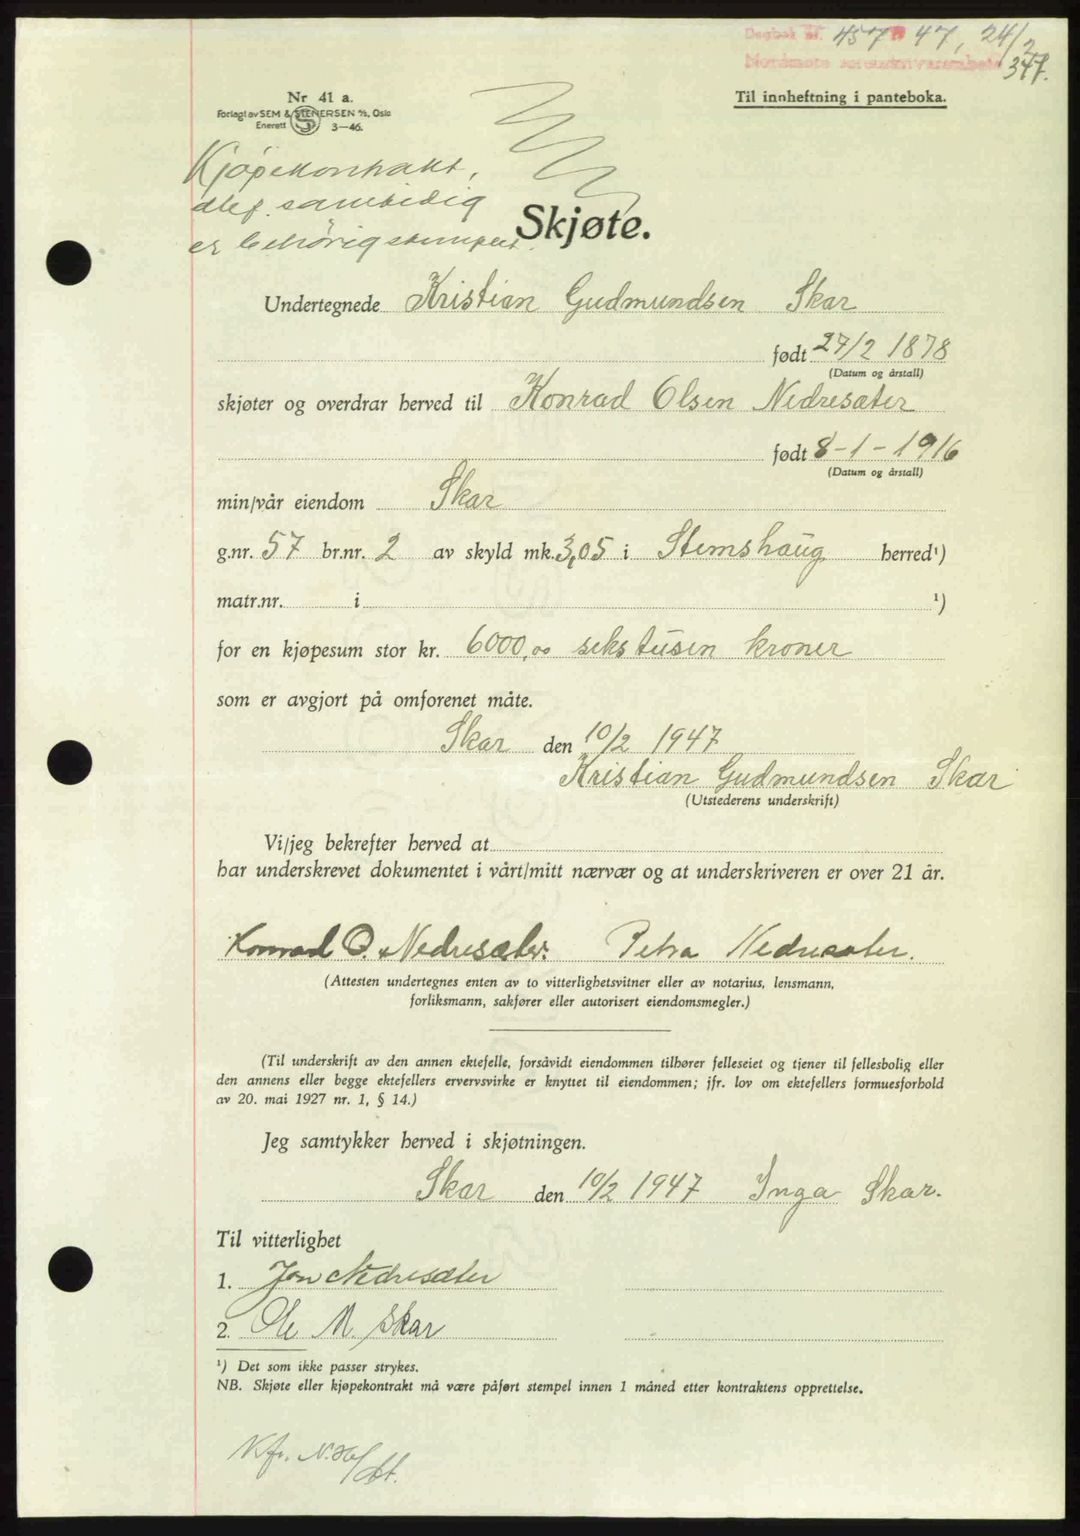 Dagbok nr. 457 47, 24/2
Nordmøre sorenskriverembete 347.
Nr 41 a.
Forlagt av SEM & STENERSEN A/S, Oslo
Enerett 3—46.
Til innheftning i panteboka.
Kjøpekontrakt,
samtidig
er behörig stemplet.
Skjøte.
Undertegnede Kristian Gudmundsen Skar
født 27/2 1878
(Datum og årstall)
skjøter og overdrar herved til Konrad Olsen Nedresæter
født 8-1-1916
(Datum og årstall)
min/vår eiendom Skar
g.nr. 57 br.nr. 2 av skyld mk. 3,05 i Stemshaug herred¹)
matr.nr. i ¹)
for en kjøpesum stor kr. 6000,00 sekstusen kroner
som er avgjort på omforenet måte.
Skar den 10/2 1947
Kristian Gudmundsen Skar
(Utstederens underskrift)
Vi/jeg bekrefter herved at
har underskrevet dokumentet i vårt/mitt nærvær og at underskriveren er over 21 år.
Konrad O. Nedresæter. Petra Nedresæter.
(Attesten undertegnes enten av to vitterlighetsvitner eller av notarius, lensmann,
forliksmann, sakfører eller autorisert eiendomsmegler.)
(Til underskrift av den annen ektefelle, forsåvidt eiendommen tilhører felleseiet og tjener til fellesbolig eller
den annens eller begge ektefellers ervervsvirke er knyttet til eiendommen; jfr. lov om ektefellers formuesforhold
av 20. mai 1927 nr. 1, § 14.)
Jeg samtykker herved i skjøtningen.
Skar den 10/2 1947 Inga Skar.
Til vitterlighet
1. Jon Nedresæter
2. Ole M. Skar
¹) Det som ikke passer strykes.
NB. Skjøte eller kjøpekontrakt må være påført stempel innen 1 måned etter kontraktens opprettelse.